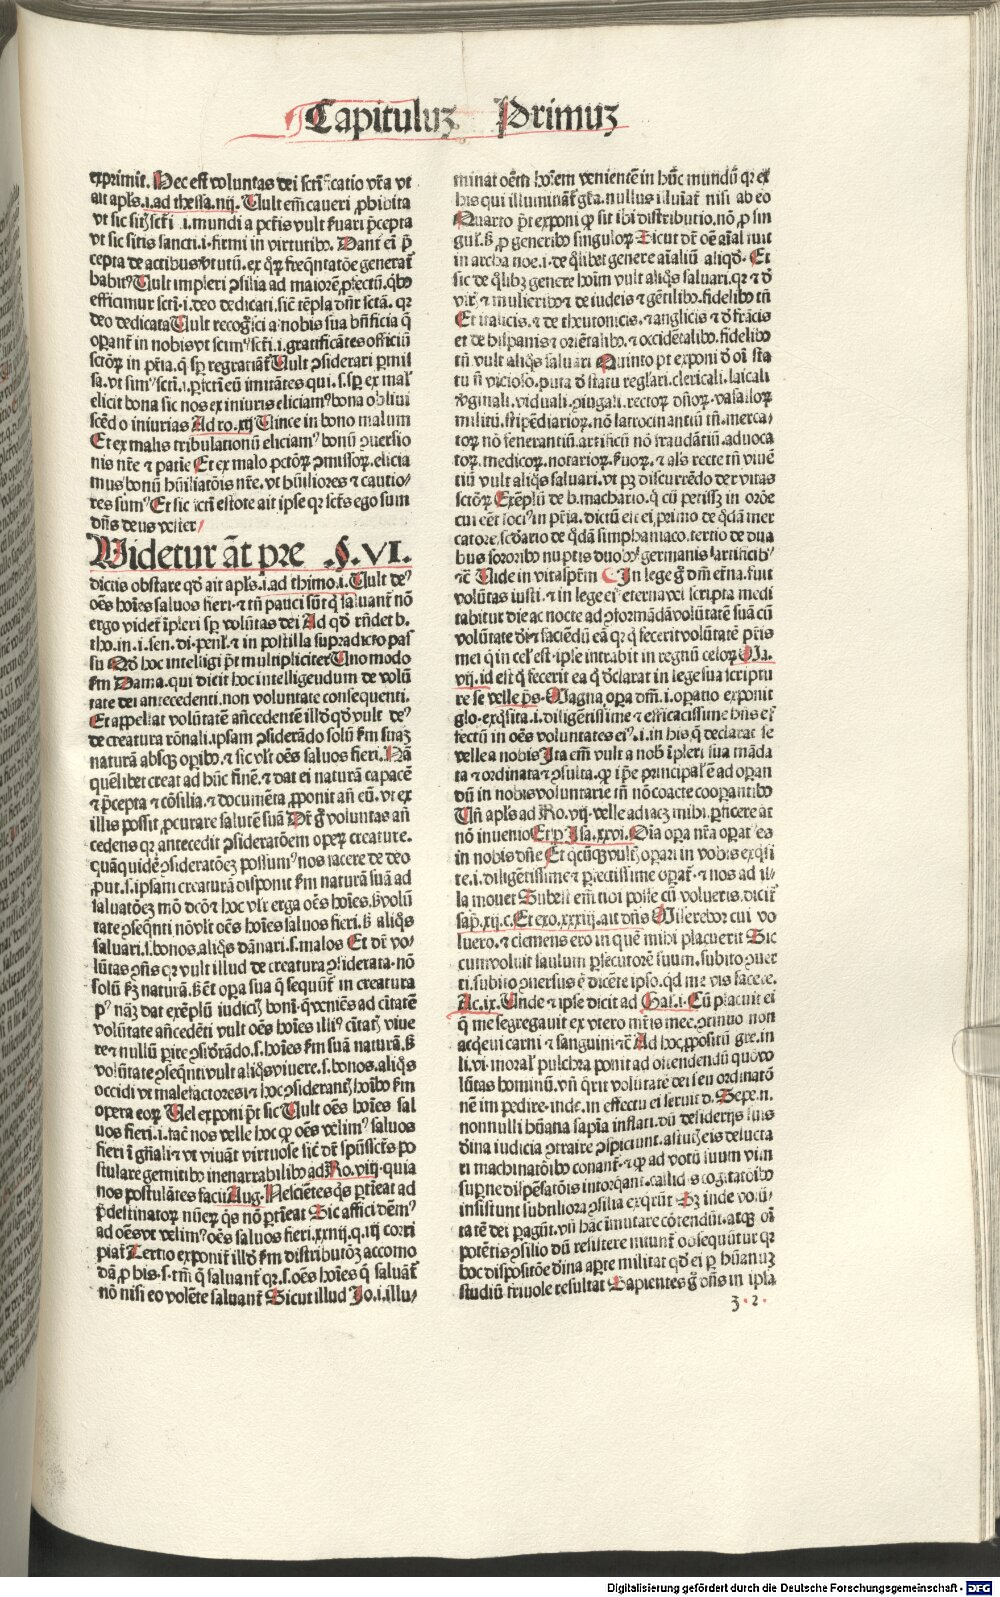 Capituluʒ Primuʒ
exprimit. Hec est voluntas dei sctificatio vr̃a vt
ait apl's.i.ad thessa.iiij. Uult em̃ caueri ꝓhibita
vt sic sitis sancti.i.firmi in virtutibꝰ. Dant em̃ p̃
cepta de actibus
efficimur scti.i.deo dedicati.sic tẽpla dñr sctã. qr
deo dedicata Uult recogsci a nobis sua bñficia q̃
sa.vt simꝰ scti.i.ꝑfecti eũ imitãtes qui.s.sp ex mal'
elicit bona sic nos ex iniurijs eliciamꝰ bona obliui
scẽdo iniurias Ad ro.xij Uince in bono malum
Et ex malis tribulationũ eliciamꝰ bonũ ꝯuersio
nis nr̃e et patiẽ Et ex malo pctõꝝ ꝯmissoꝝ.elicia
mus bonũ hũiliatõis nr̃e.vt hũiliores et cautio⸗
res sumꝰ Et sic sctri estote ait ipse qr scts ego sum
dñs deus vester
Uidetur ãt pre .§.VI.
dictis obstare qd ait apl's.i.ad thimo.i. Uult deꝰ
oẽs hoĩes saluos fieri.et tñ pauci sũt q saluant̃ nõ
ergo videt̃ ĩpleri sp volũtas dei Ad qd rñdet b.
tho.in.i.sen.di.penl'. et in postilla supradicto pas
su Qd hoc intelligi p̃t multipliciter Uno modo
ẜm Dama.qui dicit hoc intelligendum de volũ
tate dei antecedenti.non voluntate consequenti.
Et appellat volũtatẽ añcedentẽ illd qd vult deꝰ
de creatura rõnali.ipsam ꝯsiderãdo solũ ẜm suaʒ
naturã absqʒ opibꝰ.et sic vl't oẽs saluos fieri. Nã
quẽlibet creat ad hũc finẽ.et dat ei naturã capacẽ
et p̃cepta et cõsilia.et documẽta ꝓponit añ eũ.vt ex
illis possit ꝓcurare salutẽ suã Dr̃ g̃ voluntas añ
cedens qr antecedit ꝯsideratõem opeꝝ creature.
quãquidẽ ꝯsideratõeʒ possumꝰ nos facere de deo
ꝓut.s.ipsam creaturã disponit ẜm naturã suã ad
saluatõeʒ mõ dcõ et hoc vl't erga oẽs hoĩes. ß volũ
tate ꝯseqnti nõ vl't oẽs hoĩes saluos fieri.ß aliqs
saluari.s.bonos.aliqs dãnari.s.malos Et dr̃ vo⸗
lũtas ꝯñs qr vult illud de creatura ꝯsiderata.nõ
solũ ẜʒ naturã.ß et opa sua q̃ sequũt̃ in creatura
volũtate añcedẽti vult oẽs hoĩes illiꝰ ciuitat̃ viue
re et nullũ perire ꝯsiderãdo.s.hoĩes ẜm suã naturã.ß
volũtate ꝯseqnti vult aliqs viuere.s.bonos.aliqs
occidi vt malefactores et hoc ꝯsiderant̃ hoĩbꝰ ẜm
opera eoꝝ Uel exponi p̃t sic Uult oẽs hoĩes sal
uos fieri.i.facit nos velle hoc ꝙ oẽs velimꝰ saluos
fieri ĩ gñali et vt viuãt virtuose sic dr̃ spũssctũs po
stulare gemitibꝰ inenarrabilibꝰ ad Ro.viij.quia
nos postulãtes facit Aug. Nescientes qs ptĩeat ad
p̃destinatoꝝ nũeꝝ qs nõ ptĩeat Sic affici dẽmꝰ
ad oẽs vt velimꝰ oẽs saluos fieri.xxiij.q.iij corri
piat̃ Tertio exponit̃ illd ẜm distributõʒ accomo
dã.ꝓ his.s.tm̃ q saluant̃ qr.s.oẽs hoĩes q saluãt̃
nõ nisi eo volẽte saluant̃ Sicut illud Jo.i.illu⸗
minat oẽm hoĩem venientẽ in hũc mundũ qr ex
his qui illuminant̃ gr̃a.nullus illuĩat̃ nisi ab eo
Quarto p̃t exponi ꝙ sit ibi distributio.nõ ꝓ sin
gul'.ß ꝓ generibꝰ singuloꝝ Sicut dr̃ oẽ aĩal fuit
in archa noe.i.de qlibet genere aĩaliũ aliqd. Et
sic de qlibʒ genere hoĩm vult aliqs saluari.qr et d̃
viris et mulieribꝰ et de iudeis et gẽtilibꝰ.fidelibꝰ tñ
Et italicis.et de theutonicis.et anglicis et d̃ frãcis
et de hispanis et oriẽtalibꝰ.et occidẽtalibꝰ.fidelibꝰ
tñ.vult aliqs saluari Quinto pt exponi d̃ oĩ sta
tu ñ vicioso.puta d̃ statu reglari.clericali.laicali
vginali.viduali.ꝯiugali.rectoꝝ dñoꝝ.vasalloꝝ
militũ.stipẽdiarioꝝ.nõ latrocinantiũ tñ.merca⸗
toꝝ nõ fenerantiũ.artificũ nõ fraudãtiũ.aduoca
toꝝ.medicoꝝ.notarioꝝ.ßuoꝝ.et al's recte tñ viuẽ
tiũ vult aliqs saluari.vt pʒ discurrẽdo per vitas
sctõꝝ Exẽplũ de b.machario.q cũ petissʒ in orõe
cui eẽt sociꝰ in p̃ria.dictũ est ei primo de qdã mer
catore.scdario de qdã simphaniaco.tertio de dua
bus sororibꝰ nuptis duobꝰ germanis artificibꝰ
etc̃ Uide in vitaspr̃m In lege g̃ dñi et̃na.fuit
volũtas iusti.et in lege eiꝰ eternaʒ scripta medi
tabitur die ac nocte ad ꝯformãdã volũtatẽ suã cũ
volũtate dei et faciẽdũ eã qr q fecerit volũtatẽ pr̃is
mei q in cel' est.ipse intrabit in regnũ celoꝝ Ma.
vij.id est q fecerit ea q̃ declarat in lege sua scriptu
re se velle p̃s. Magna opa dñi.i.opatio exponit
glo.exqsita.i.diligentissime et efficacissime hñs ef
fectũ in oẽs voluntates eiꝰ.i.in his q̃ declarat se
velle a nobis Ita em̃ vult a nob ĩpleri sua mãda
ta et ordinata et ꝯsulta.ꝙ ip̃e principal' ẽ ad operan
dũ in nobis voluntarie tñ nõ coacte cooperantibꝰ
Uñ apl's ad Ro.vij.velle adiacʒ mihi.ꝑficere ãt
nõ inuenio Et Isa.xxvi. Oĩa opa nr̃a operat̃ es
in nobis dñe
te.i.diligẽtissime et ꝑfectissime operat̃.et nos ad il⸗
la mouet Subest em̃ tibi posse cũ volueris.dicit̃
sap.xij.c. Et exo.xxxiij.ait dñs Miserebor cui vo
luero.et clemens ero in quẽ mihi placuerit Sic
cum voluit saulum ꝑsecutorẽ suum.subito ꝯuer
ti.subito ꝯuersus ẽ dicẽte ipso.qd me vis facere.
Ac.ix. Unde et ipse dicit ad Gal.i. Cũ placuit ei
q me segregauit ex vtero mr̃is mee.ꝯtinuo non
acqeui carni et sanguini etc̃ Ad hoc ꝓpositũ gre.in
li.vi moral' pulchra ponit ad ostendendũ quõ vo
lũtas hominũ.vñ qrit volũtatẽ dei seu ordinatõ
nẽ impedire.inde.in effectu ei seruit d. Sepe.n.
nonnulli hũana sapĩa inflati.dũ desiderijs suis
dĩna iudicia ꝯtraire ꝯspiciunt.astuciʒeis delucta
ri machinatõibꝰ conant̃.et ꝙ ad votũ suum vim
supne dispẽsatõis intorqant.callidis cogitatõibꝰ
insistunt subtiliora ꝯsilia exqrũt Sʒ inde volũ⸗
tatẽ dei pagũt.vñ hãc imutare cõtendũt.atqʒ oĩ
potẽtis ꝯsilio dũ resistere nitunt̃ obsequũtur qr
hoc dispositõe dĩna apte militat qd ei ꝑ hũanuʒ
studiũ friuole resultat Sapientes g̃ dñs in ipsa
ʒ 2
Digitalisierung gefördert durch die Deutsche Forschungsgemeinschaft - DFG